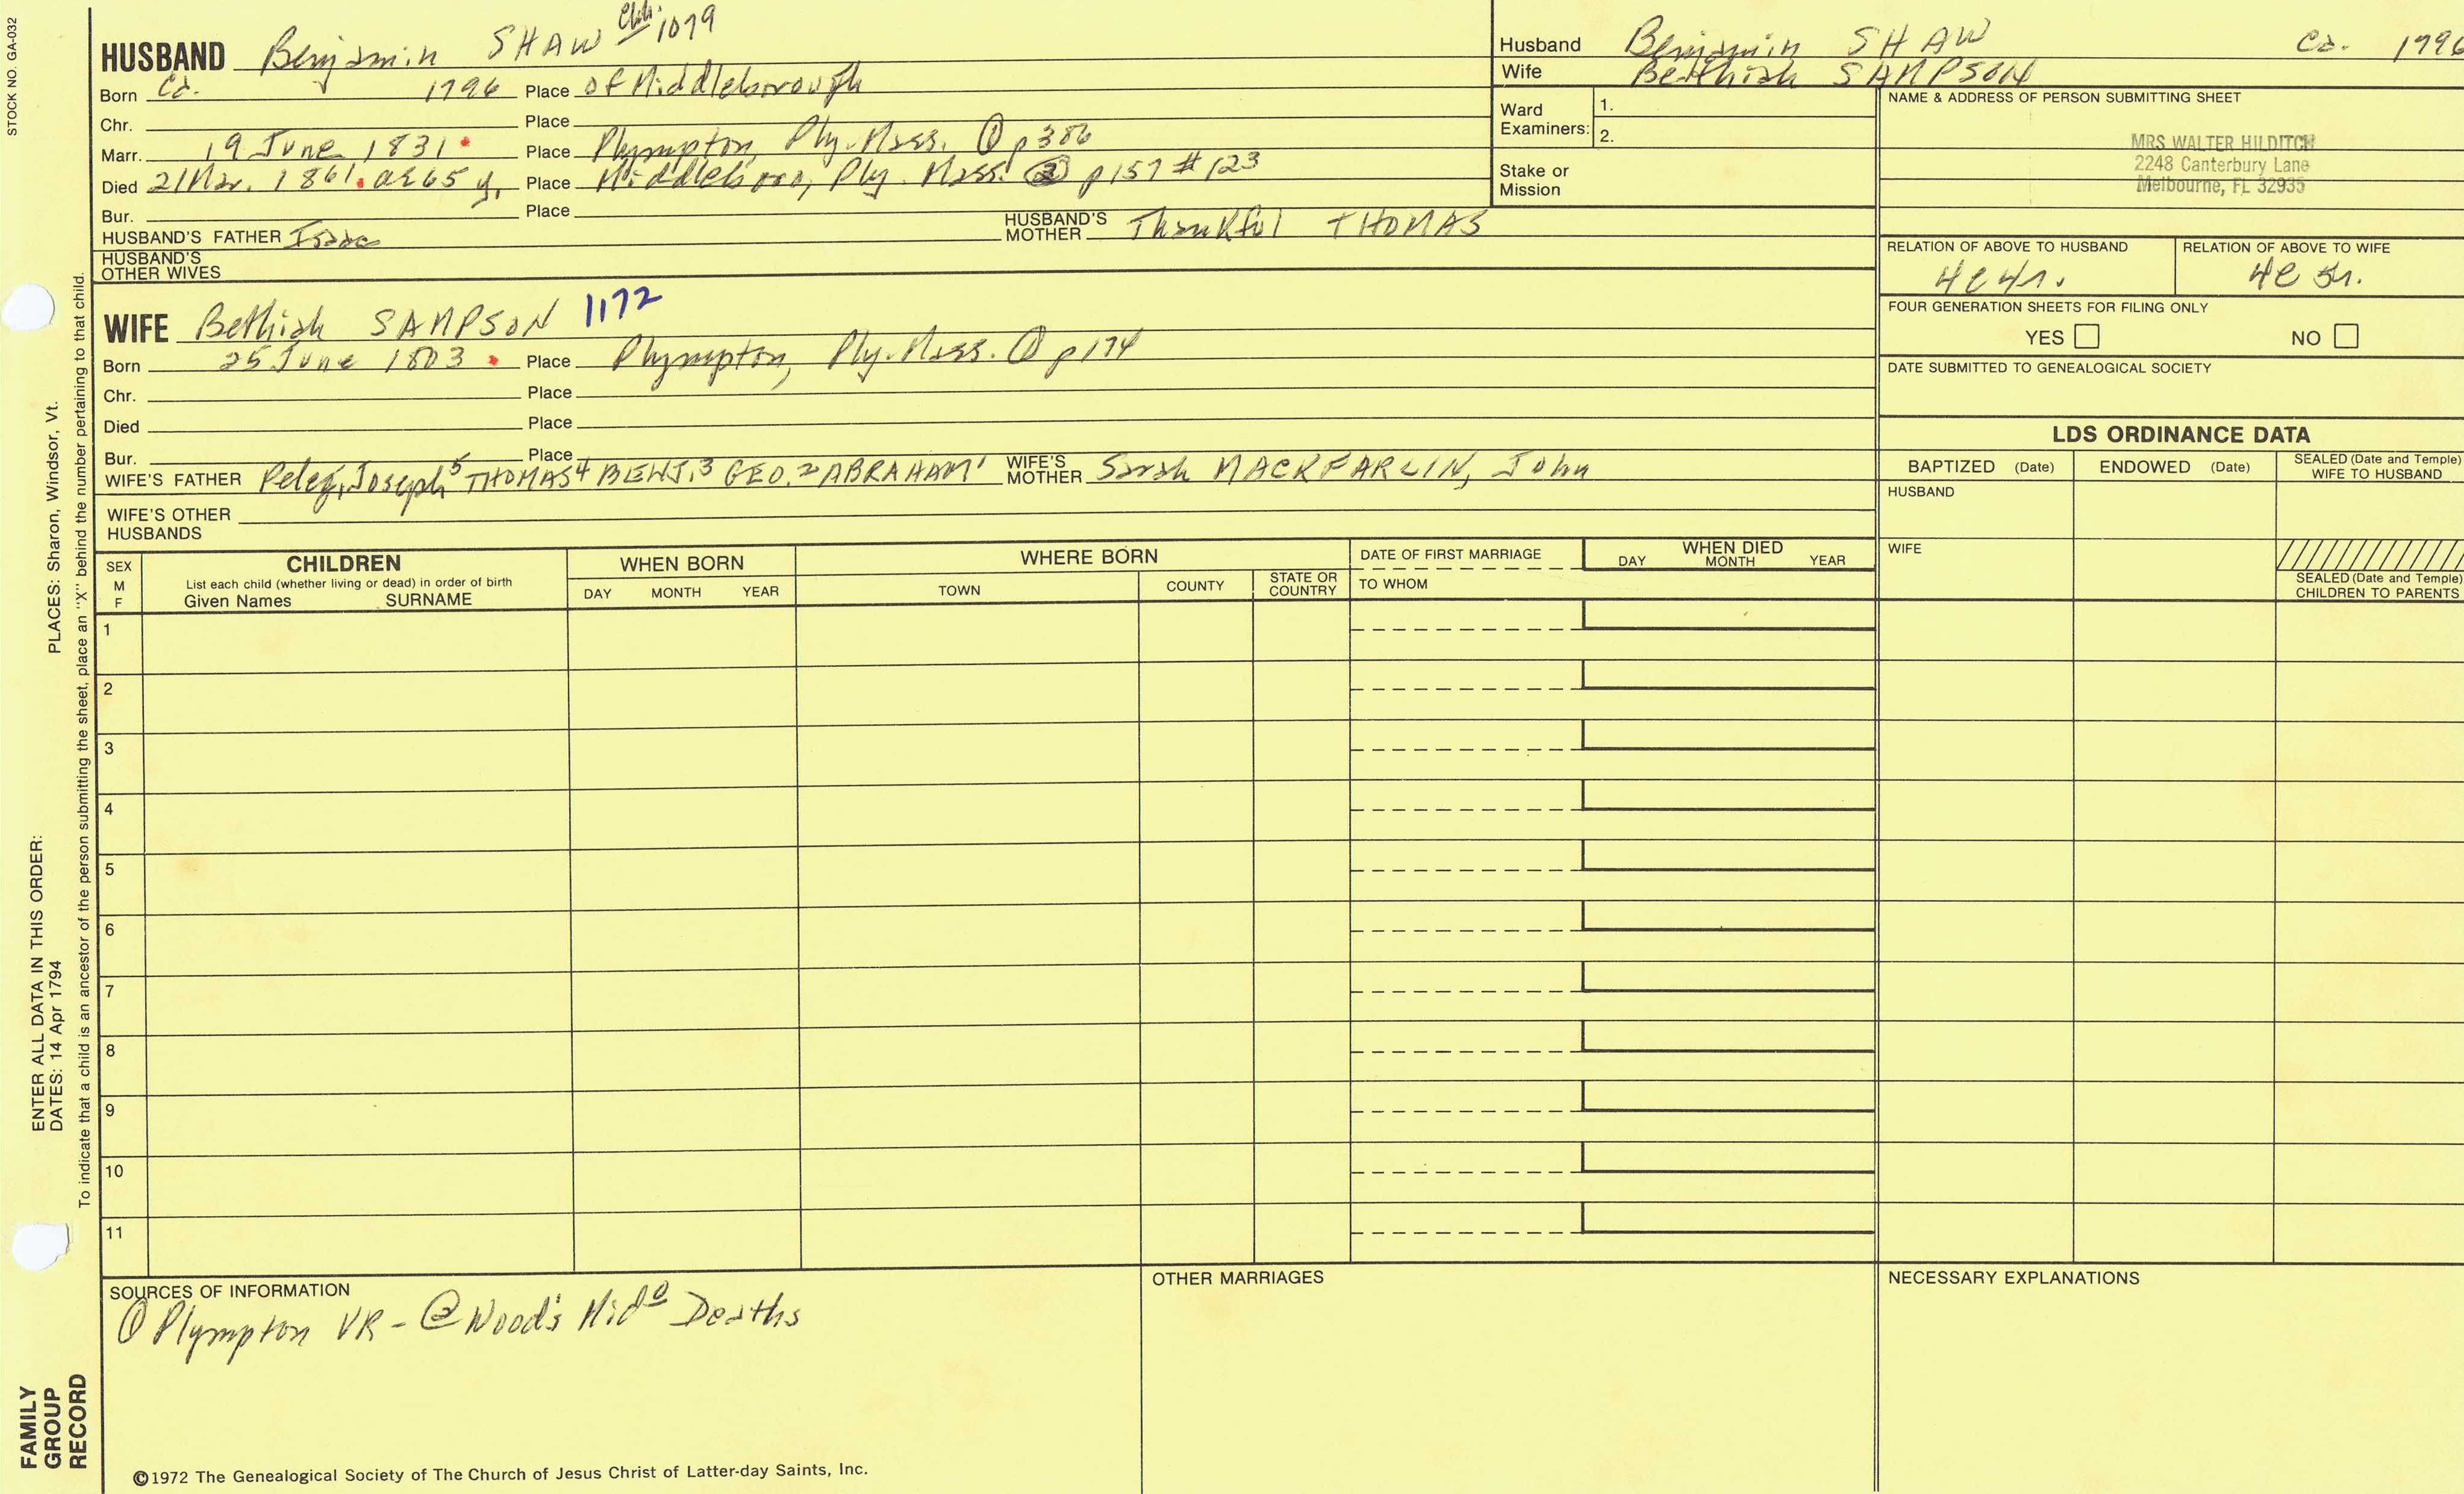 STOCK NO. GA-032
HUSBAND Benjamin SHAW 1079
Born Ca. 1796 Place of Middleborough
Chr. Place
Marr. 19 June 1831 Place Plympton, Ply. Mass. ① p386
Died 21 Mar. 1861. ae 65 y. Place Middleboro, Ply. Mass. ② p157 #123
Bur. Place
HUSBAND'S FATHER Isaac HUSBAND'S MOTHER Thankful THOMAS
HUSBAND'S OTHER WIVES
WIFE Bethiah SAMPSON 1172
Born 25 June 1803 Place Plympton, Ply. Mass. ① p174
Chr. Place
Died Place
Bur. Place
WIFE'S FATHER Peleg, Joseph⁵ THOMAS⁴ BENJ.³ GEO.² ABRAHAM¹ WIFE'S MOTHER Sarah MACKFARLIN, John
WIFE'S OTHER HUSBANDS
Husband Benjamin SHAW Ca. 1796
Wife Bethiah SAMPSON
Ward Examiners: 1.
2.
Stake or Mission
NAME & ADDRESS OF PERSON SUBMITTING SHEET
MRS WALTER HILDITCH
2248 Canterbury Lane
Melbourne, FL 32935
RELATION OF ABOVE TO HUSBAND RELATION OF ABOVE TO WIFE
4c4r. 4c5r.
FOUR GENERATION SHEETS FOR FILING ONLY
YES NO
DATE SUBMITTED TO GENEALOGICAL SOCIETY
LDS ORDINANCE DATA
BAPTIZED (Date) ENDOWED (Date) SEALED (Date and Temple) WIFE TO HUSBAND
HUSBAND
WIFE
SEALED (Date and Temple) CHILDREN TO PARENTS
SEX M F CHILDREN WHEN BORN WHERE BORN DATE OF FIRST MARRIAGE WHEN DIED
List each child (whether living or dead) in order of birth
Given Names SURNAME DAY MONTH YEAR TOWN COUNTY STATE OR COUNTRY TO WHOM DAY MONTH YEAR
1
2
3
4
5
6
7
8
9
10
11
SOURCES OF INFORMATION
① Plympton VR - ② Wood's Mido Deaths
OTHER MARRIAGES
NECESSARY EXPLANATIONS
©1972 The Genealogical Society of The Church of Jesus Christ of Latter-day Saints, Inc.
PLACES: Sharon, Windsor, Vt.
ENTER ALL DATA IN THIS ORDER:
DATES: 14 Apr 1794
To indicate that a child is an ancestor of the person submitting the sheet, place an "X" behind the number pertaining to that child.
FAMILY
GROUP
RECORD